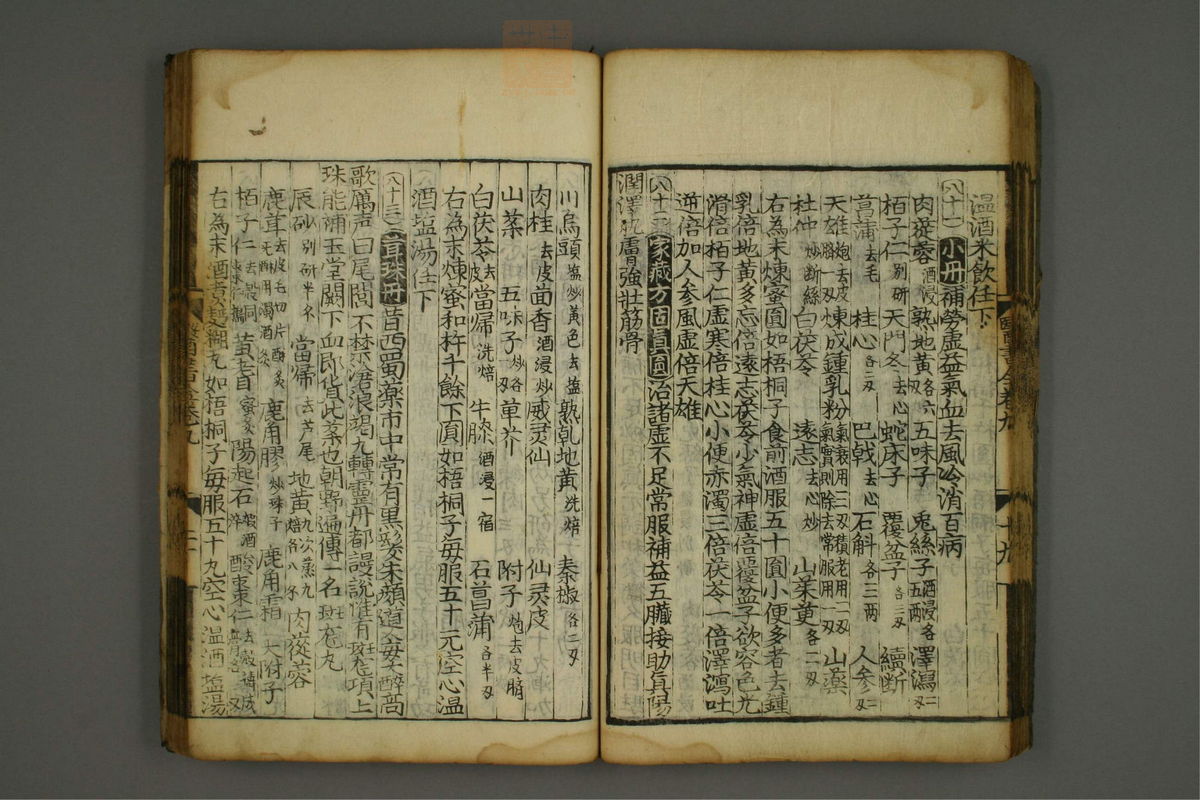 溫酒米飲任下
八十一 小丹 補勞虛益氣血去風冷消百病
肉蓯蓉酒浸 熟地黃各六刄 五味子 兎絲子酒浸各五两 澤瀉二刄
栢子仁别研 天門冬去心 蛇床子 覆盆子各三刄 續斷
菖蒲去毛 桂心各二刄 巴戟去心 石斛各三两 人參二刄
天雄炮去皮臍一刄 煉成鍾乳粉氣衰用三刄積老用一刄氣實則除去常服用一刄 山藥
杜仲炒斷絲 白茯苓 遠志去心炒 山茱萸各二刄
右為末煉蜜圓如梧桐子食前酒服五十圓小便多者去鍾
乳倍地黃多忘倍遠志茯苓少氣神虛倍覆盆子欲容色尤
滑倍栢子仁虛寒倍桂心小便赤濁三倍茯苓一倍澤瀉吐
逆倍加人參風虛倍天雄
八十二 家藏方固真圓 治諸虛不足常服補益五臟接助眞陽
潤澤肌膚強壯筋骨
川烏頭塩炒黃色去塩 熟乹地黃洗焙 秦椒各二刄
肉桂去皮 茴香酒浸炒 威灵仙 仙灵皮
山藥 五味子炒各一刄 草芥 附子炮去皮臍
白茯苓去皮 當歸洗焙 牛膝酒浸一宿 石菖蒲各半刄
右為末煉蜜和杵千餘下圓如梧桐子每服五十元空心温
酒塩湯任下
八十三 茸珠丹 昔西蜀藥市中常有黒髮朱顔道人每手醉高
歌厲声曰尾閭不禁滄浪竭九轉靈丹都謾說惟有班龍頂上
珠能補玉堂闕下血即貨此藥也朝野遍傳一名班龍丸
辰砂别研半刄 當帰去芦尾 地黃九次蒸九焙各八刄 肉蓯蓉
鹿茸去皮毛切片酥炙无酥用濁酒炙 鹿角膠炒珠子 鹿角霜 大附子
栢子仁去殻 黃耆蜜炙 陽起石煆酒淬 酸棗仁去殻
右為末酒煮麵糊丸如梧桐子每服五十九空心温酒塩湯